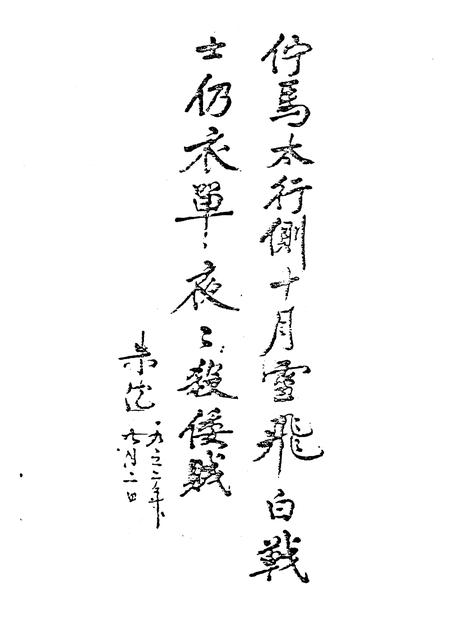 佇馬太行側十月雪飛白戰
士仍衣單夜〻殺倭賊
朱德
一九六二年
九月二日